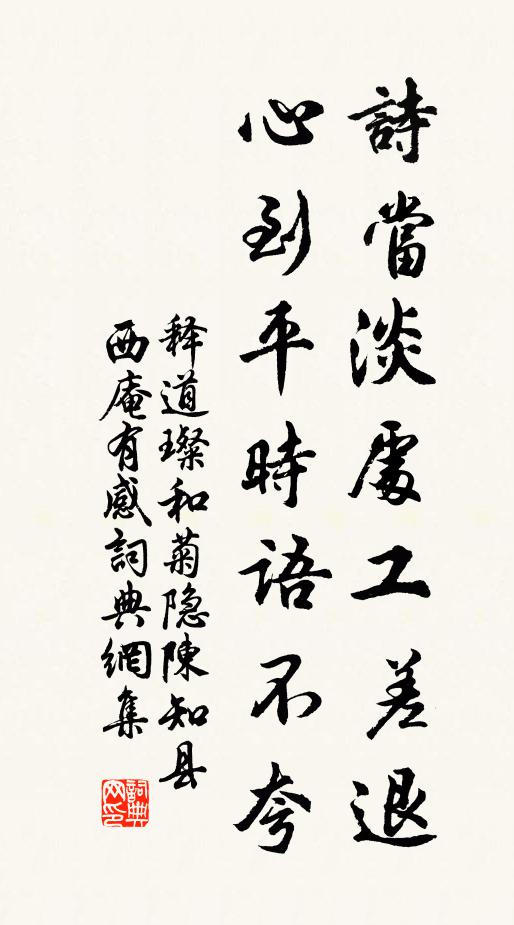 詩當淡處工差退
心到平時語不夸
释道璨和菊隐陳知县
西庵有感詞典網集
詞典網印